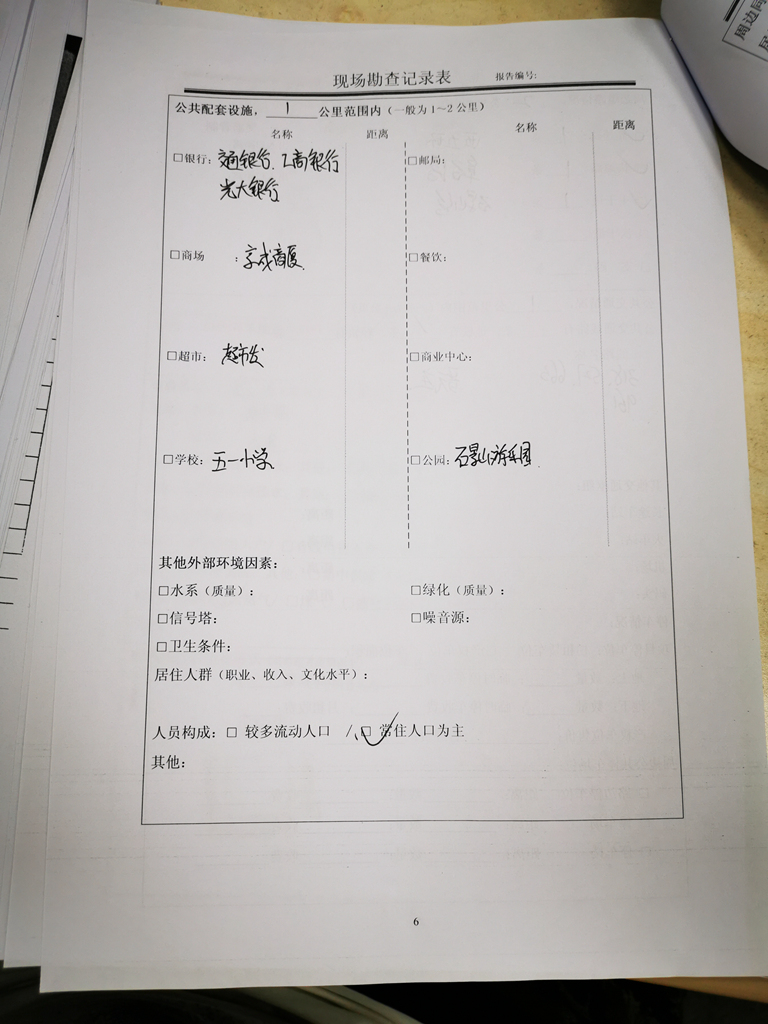 现场勘查记录表 报告编号:
公共配套设施，1公里范围内（一般为1～2公里）
名称 距离 名称 距离
□银行：交通银行、工商银行 □邮局：
光大银行
□商场 ：京成商厦 □餐饮：
□超市：超市发 □商业中心：
□学校：五一小学 □公园：石景山游乐园
其他外部环境因素：
□水系（质量）： □绿化（质量）：
□信号塔： □噪音源：
□卫生条件：
居住人群（职业、收入、文化水平）：
人员构成：□ 较多流动人口 /、□✓ 常住人口为主
其他：
6
周边同
居